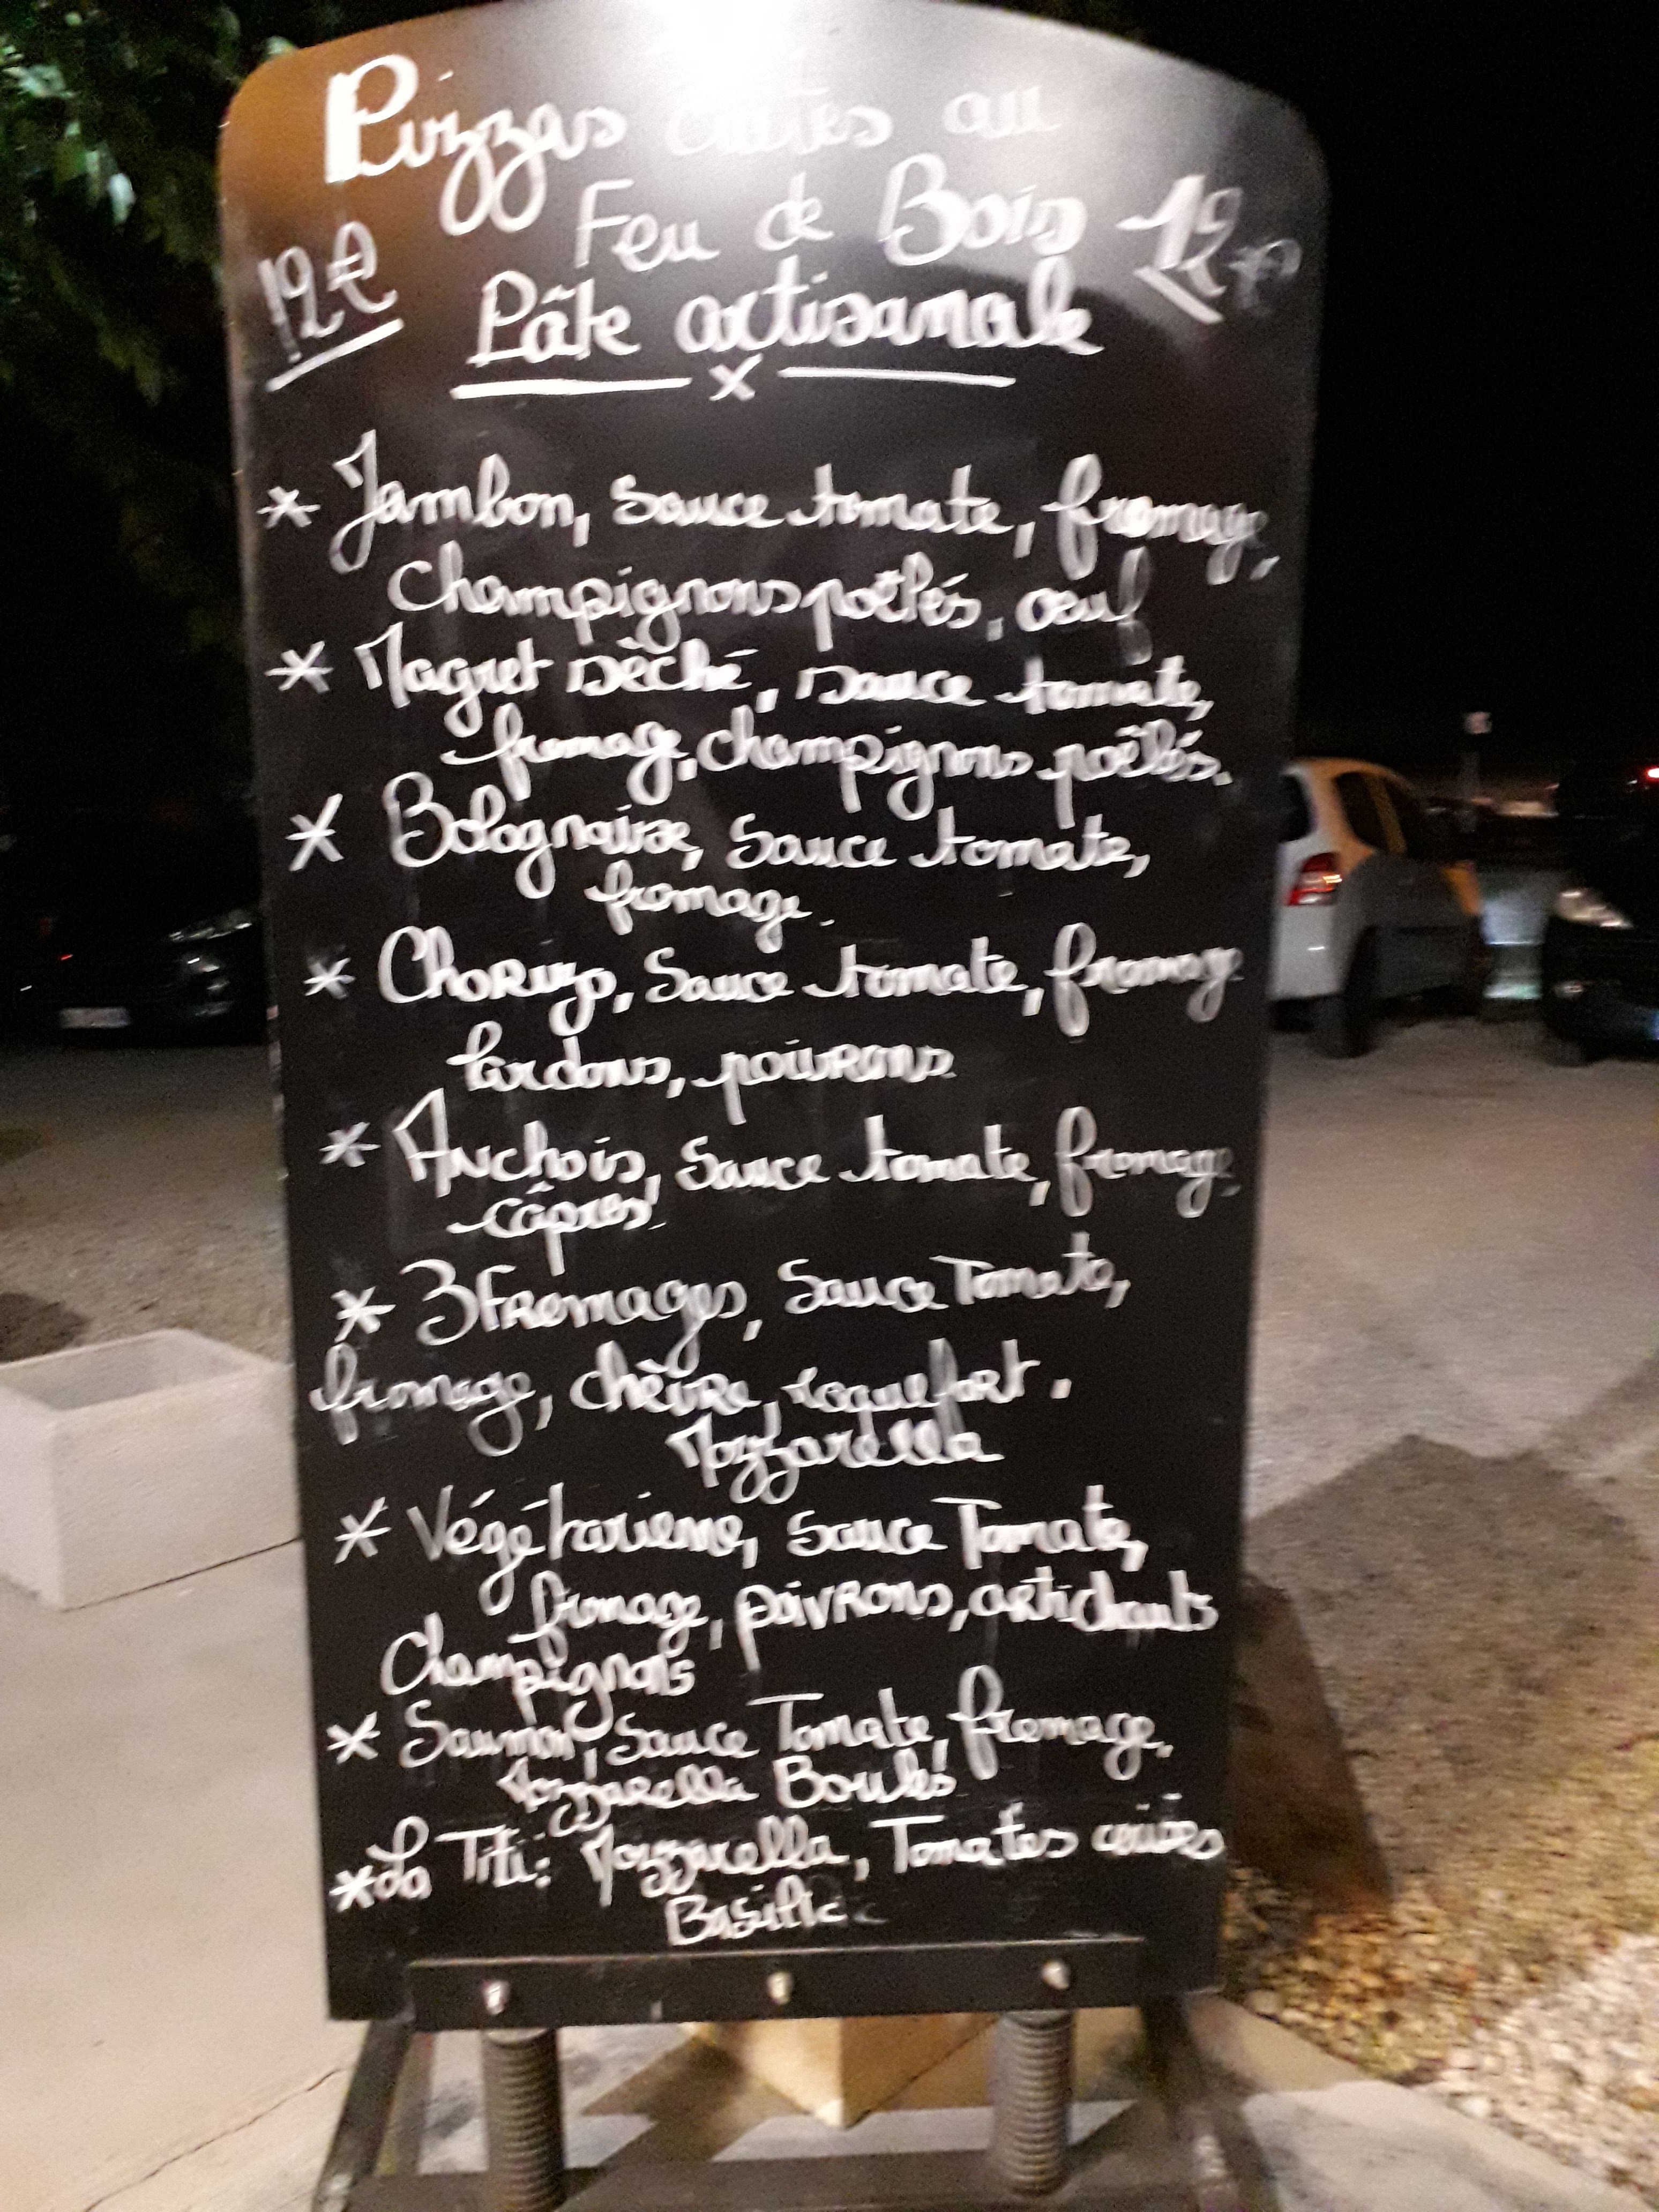 Pizzas cuites au
Feu de Bois
12€
12€
Pâte artisanale
x
* Jambon, sauce tomate, fromage,
champignons poêlés, œuf
* Magret sèché, sauce tomate,
fromage, champignons poêlés.
* Bolognaise, sauce tomate,
fromage.
* Chorizo, sauce tomate, fromage
lardons, poivrons
* Anchois, sauce tomate, fromage,
câpres.
* 3 Fromages, sauce Tomate,
fromage, chèvre, roquefort.
Mozzarella
* Végétarienne, sauce Tomate,
fromage, poivrons, artichauts
champignons
* Saumon, sauce Tomate, fromage,
Mozzarella Boules
* La Titi: Mozzarella, Tomates cerises
Basilic